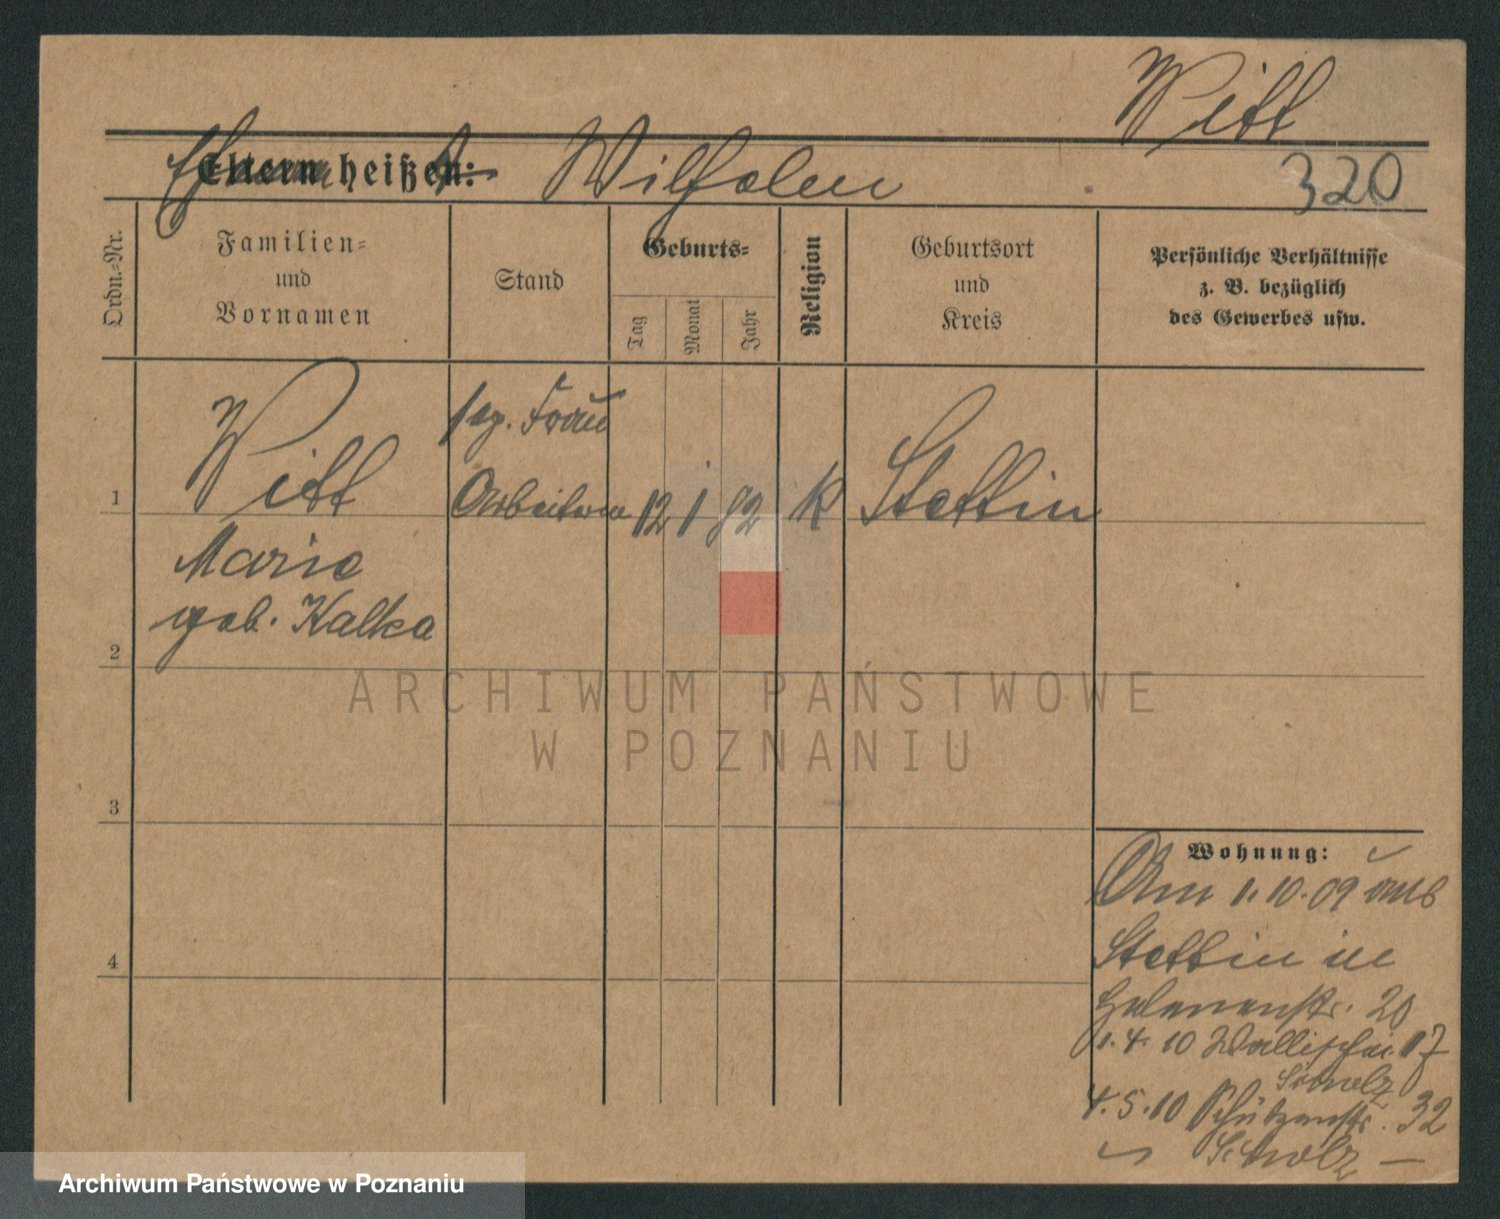 Witt
Eltern heißen: Wilhelm
320
Ordn.-Nr.
Familien-
und
Vornamen
Stand
Geburts-
Tag
Monat
Jahr
Religion
Geburtsort
und
Kreis
Persönliche Verhältnisse
z. B. bezüglich
des Gewerbes usw.
1
Witt
Marie
geb. Kalka
Frau
12 1 82
k
Stettin
2
3
4
Wohnung:
Am 1.10.09 aus
Stettin in
Helenenstr. 20
1.4.10 Wallischei 17
Scholz
4.5.10 Schützenstr. 32
Scholz
ARCHIWUM PAŃSTWOWE
W POZNANIU
Archiwum Państwowe w Poznaniu